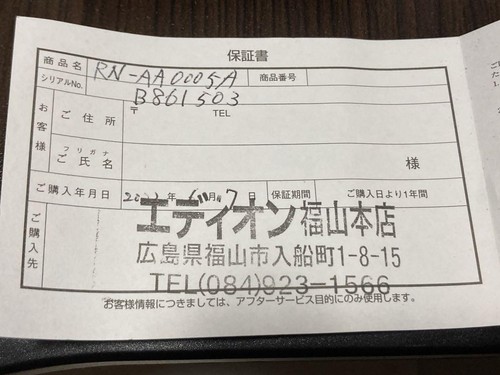 保証書
商品名 RN-AA0005A 商品番号
シリアルNo. B861503
お客様
ご住所 〒 TEL
フリガナ
ご氏名 様
ご購入年月日 年 6月 7日 保証期間 ご購入日より1年間
ご購入先
エディオン福山本店
広島県福山市入船町1-8-15
TEL(084)923-1566
お客様情報につきましては、アフターサービス目的にのみ使用します。